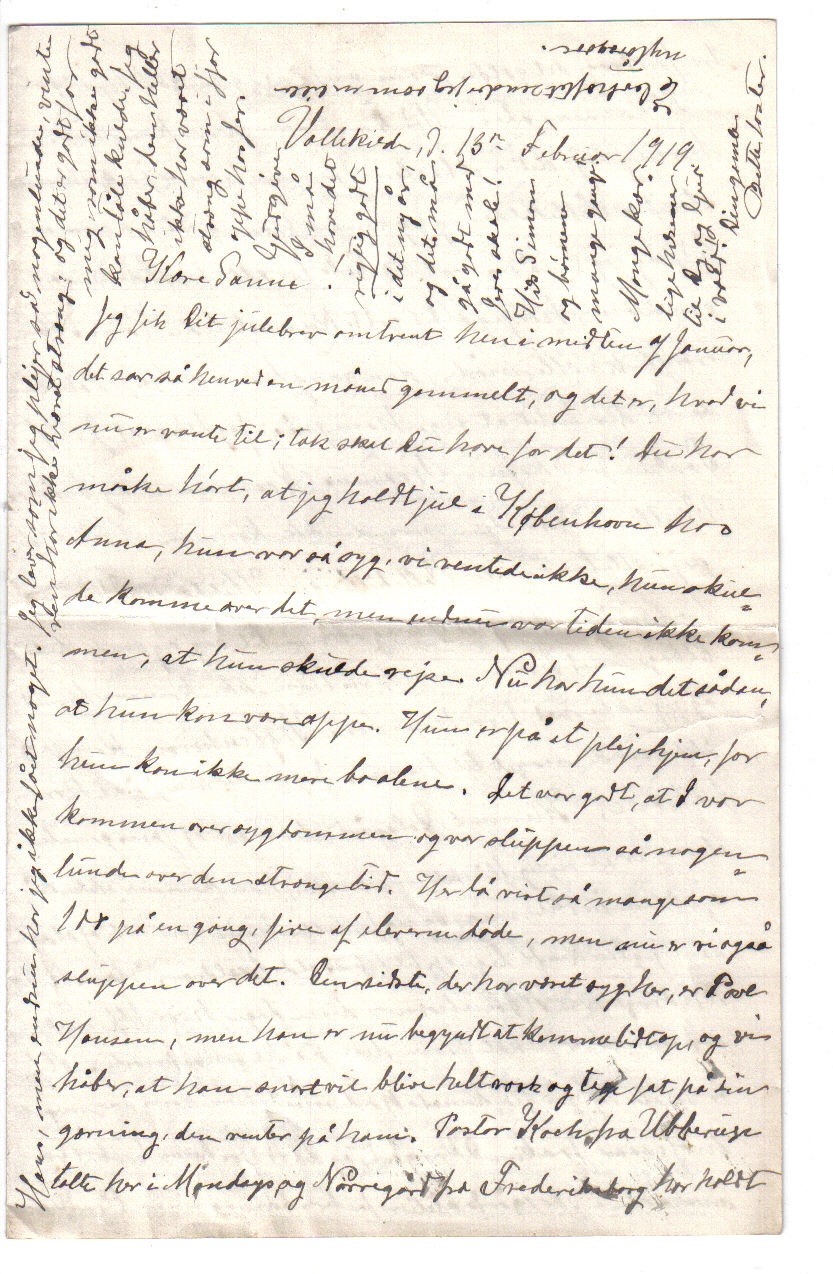 Vallekilde, d. 13de Februar 1919
Kære Sanne!
Jeg fik Dit julebrev omtrent hen i midten af Januar,
det var så henved en måned gammelt, og det er, hvad vi
nu er vante til; tak skal Du have for det! Du har
måske hört, at jeg holdt jul i København hos
Anna, hun var så syg, vi ventede ikke, hun skul=
de komme over det, men endnu var tiden ikke kom=
men, at hun skulde rejse. Nu har hun det sådan,
at hun kan være oppe. Hun er på et plejehjem, for
hun kan ikke mere bo alene. Det var godt, at I var
kommen over sygdommen og var sluppen så nogen=
lunde over den strænge tid. Her lå vist så mange som
100 på en gang, fire af eleverne döde, men nu er vi også
sluppen over det. Den sidste, der har været syg her, er Povl
Hansen, men han er nu begyndt at komme lidt op, og vi
håber, at han snart vil blive helt rask og tage fat på sin
gærning, den venter på ham. Pastor Koch fra Ubberup
talte her i Mandags, og Nörregård fra Frederiksborg har holdt
Hans, men endnu har jeg ikke fået noget. Jeg lever som jeg plejer så nogenlunde, vinte
ren har ikke været stræng; og det er godt for
mig, som ikke godt
kan tåle kulde. Jeg
håber, den heller
ikke har været
stræng som i fjor
oppe hos jer.
Gud give,
I må
have det
rigtig godt
i det ny år,
og det må
gå godt med
jeres skole!
Hils Simon
og börnene
mange gange.
Mange kær=
lige hilsner
til Dig og Jer
i vold! Din gamle
Sette faster.
Et portræt sender jeg som en lille
nytårsgave.